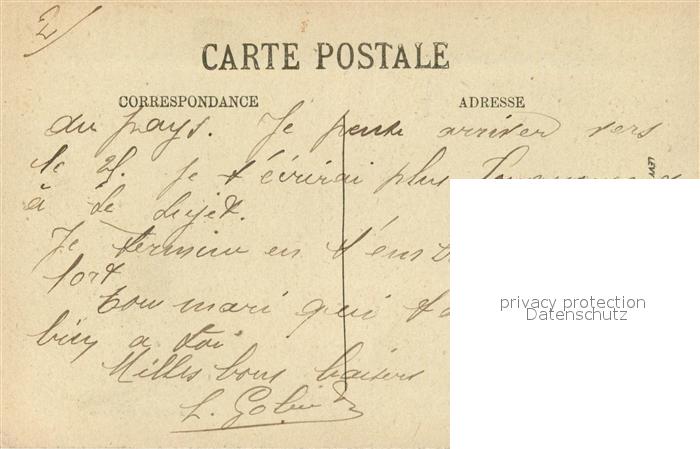 2)
CARTE POSTALE
CORRESPONDANCE ADRESSE
du pays. Je pense arriver vers
le 25. Je t'écrirai plus
à ce sujet.
Je termine en t'em
fort
Ton mari qui t'a
bien a toi
Milles bons baisers
L. Gobin
privacy protection
Datenschutz